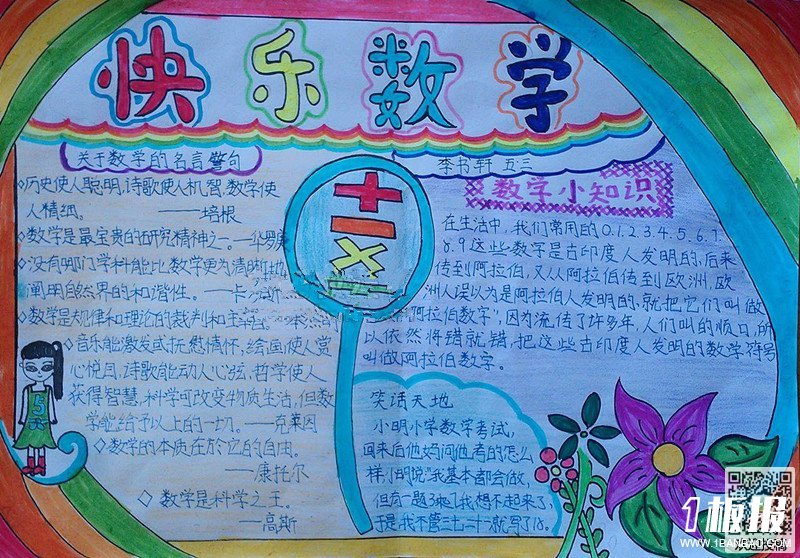 快乐数学
关于数学的名言警句
李书轩 五三
◇历史使人聪明,诗歌使人机智,数学使
人精细。 ——培根
◇数学是最宝贵的研究精神之一。—华罗庚
◇没有哪门学科能比数学更为清晰地
阐明自然界的和谐性。——卡
◇数学是规律和理论的裁判和主宰。
◇音乐能激发或抚慰情怀,绘画使人赏
心悦目,诗歌能动人心弦,哲学使人
获得智慧,科学可改变物质生活,但数
学能给予以上的一切。——克莱因
◇数学的本质在於它的自由。
——康托尔
◇ 数学是科学之王。
——高斯
数学小知识
在生活中,我们常用的0.1.2.3.4.5.6.7.
8.9这些数学是古印度人发明的,后来
传到阿拉伯,又从阿拉伯传到欧洲,欧
洲人误以为是阿拉伯人发明的,就把它们叫做
"阿拉伯数字",因为流传了许多年,人们叫的顺口,所
以依然将错就错,把这些古印度人发明的数学符号
叫做阿拉伯数字。
笑话天地
小明小学数学考试,
回来后他妈问他考的怎么
样,小明说"我基本都会做,
但有一题3乘7我想不起来了,
于是我不管三七二十一就写了18。
5
1板报
WWW.1BANBAO.COM